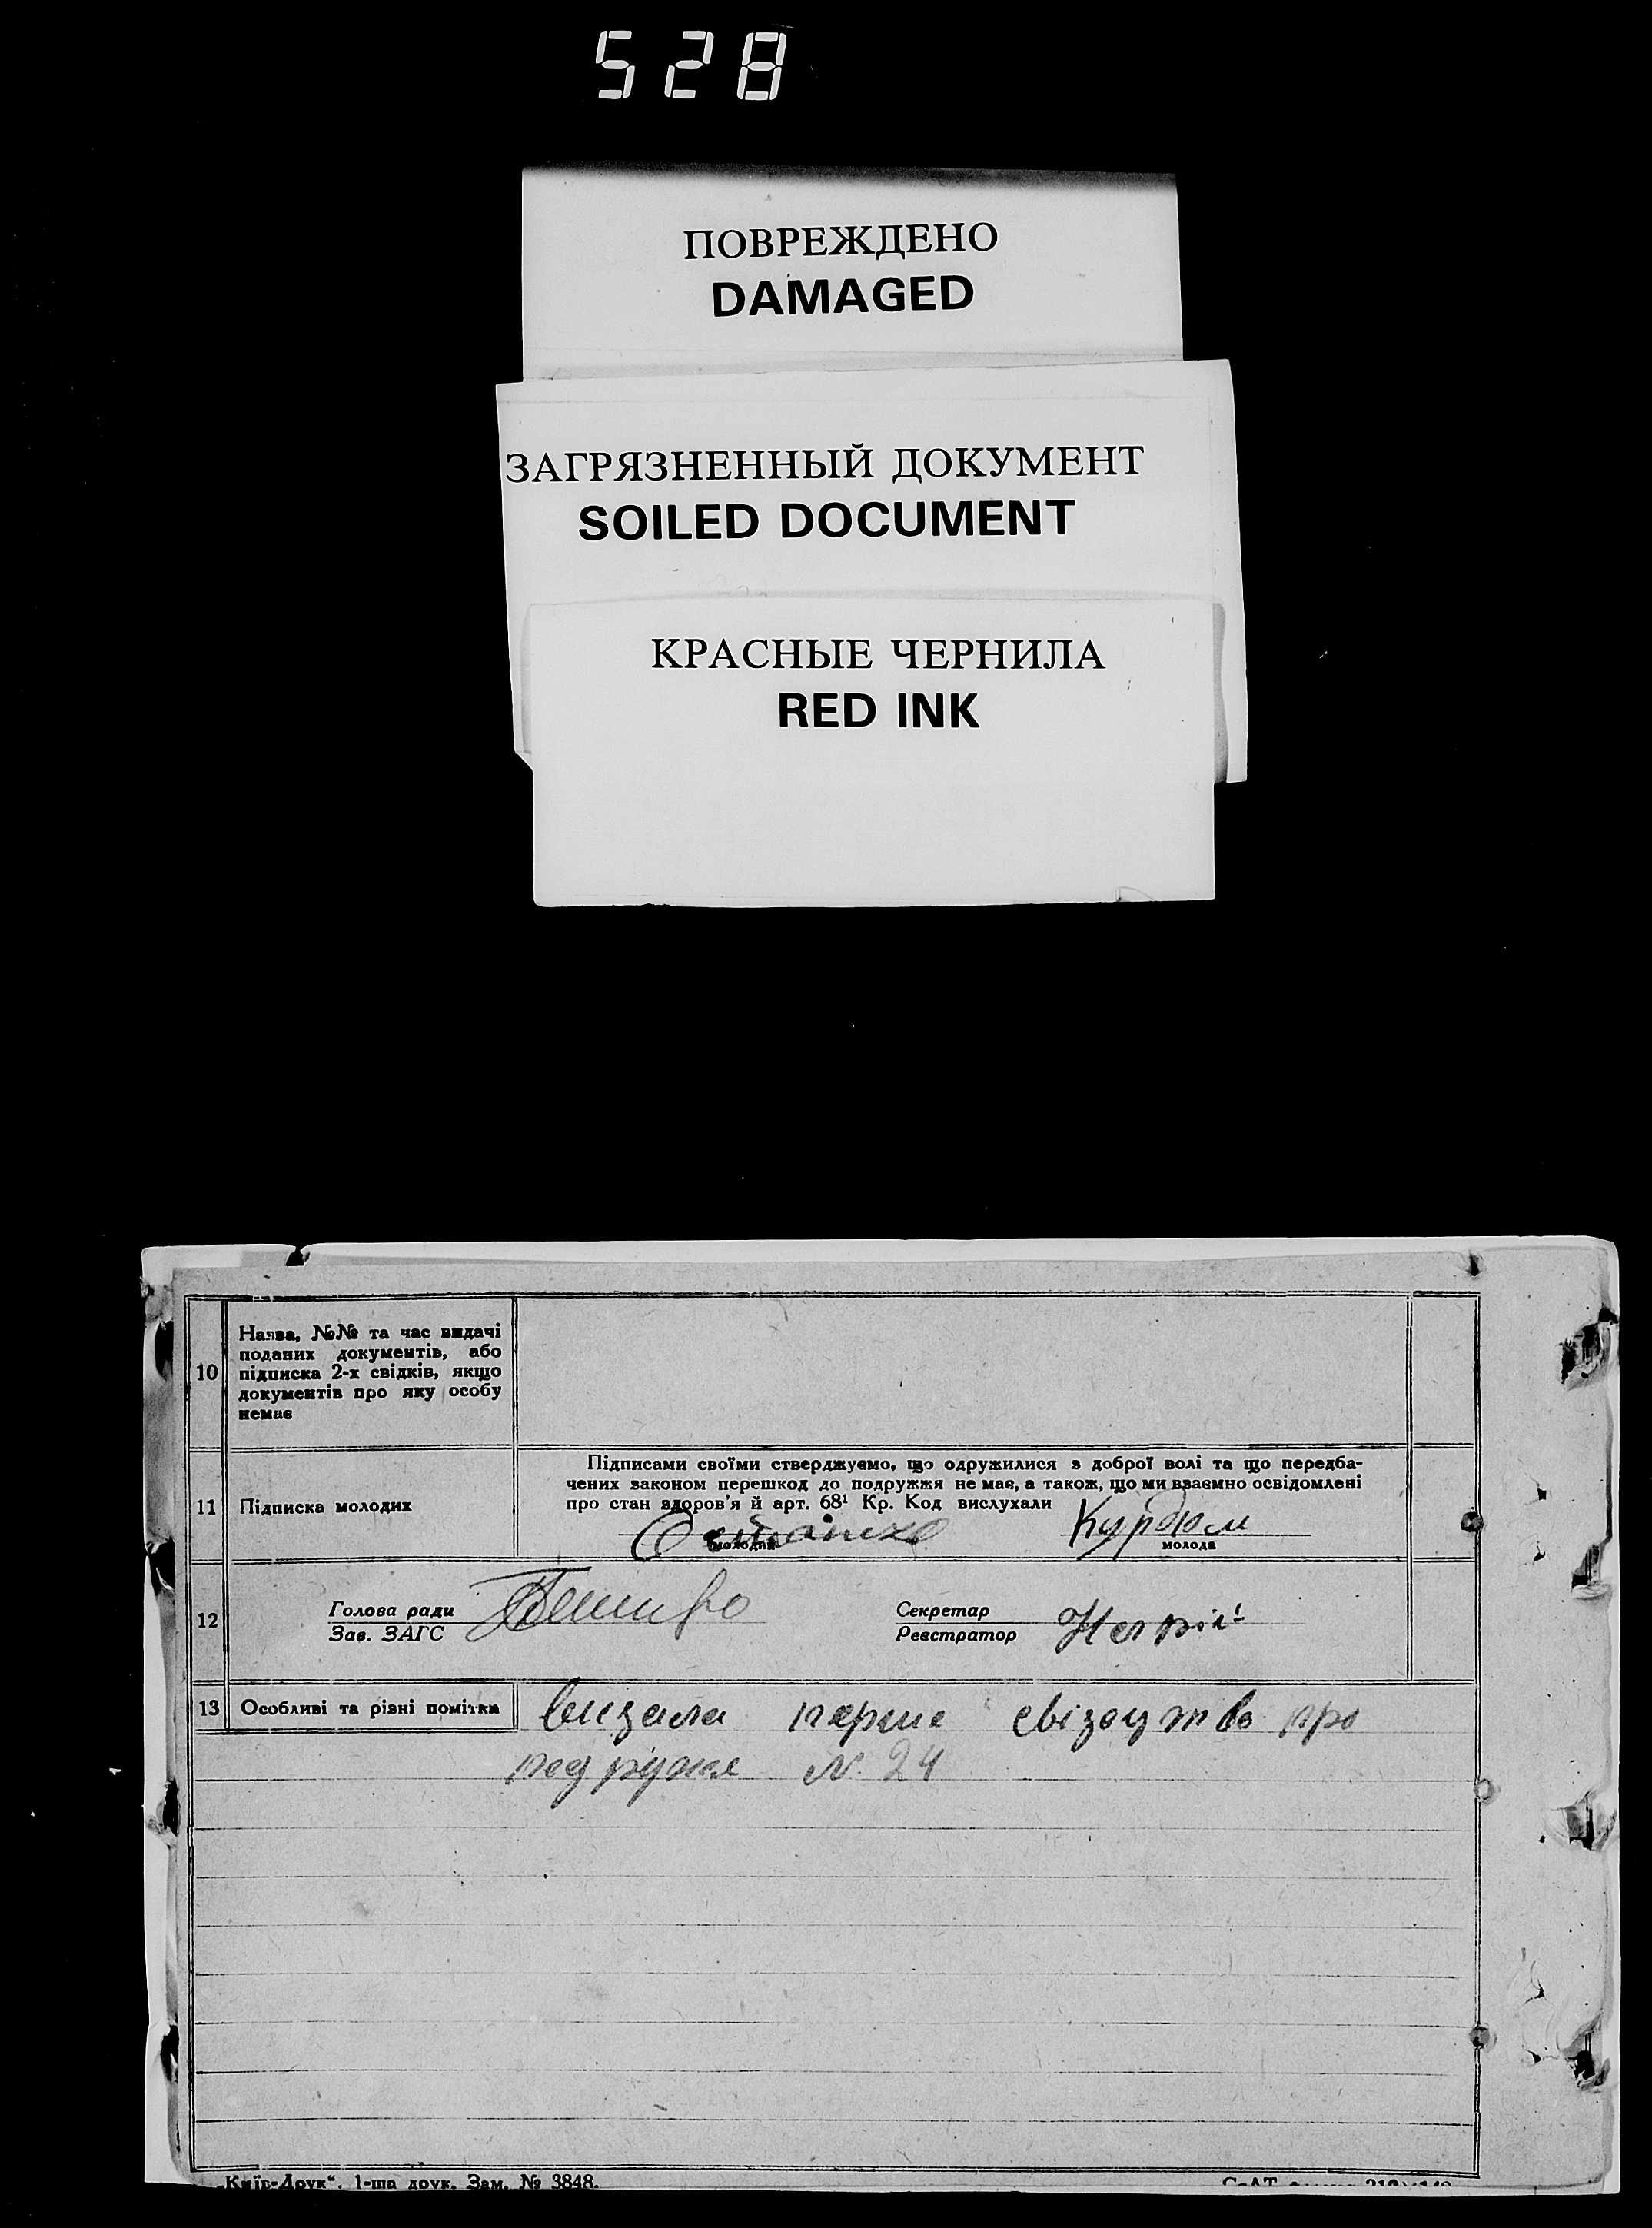 528
ПОВРЕЖДЕНО
DAMAGED
ЗАГРЯЗНЕННЫЙ ДОКУМЕНТ
SOILED DOCUMENT
КРАСНЫЕ ЧЕРНИЛА
RED INK
10
Назва, №№ та час видачі
поданих документів, або
підписка 2-х свідків, якщо
документів про яку особу
немає
11
Підписка молодих
Підписами своїми стверджуємо, що одружилися з доброї волі та що передба-
чених законом перешкод до подружжя не має, а також, що ми взаємно освідомлені
про стан здоров'я й арт. 68¹ Кр. Код вислухали
молодий
Курдюм
молода
12
Голова ради
Зав. ЗАГС
Секретар
Реєстратор
13 Особливі та рівні помітки
видала перше свідоцтво про
подружя № 24
„Київ-Друк“. 1-ша друк. Зам. № 3848.